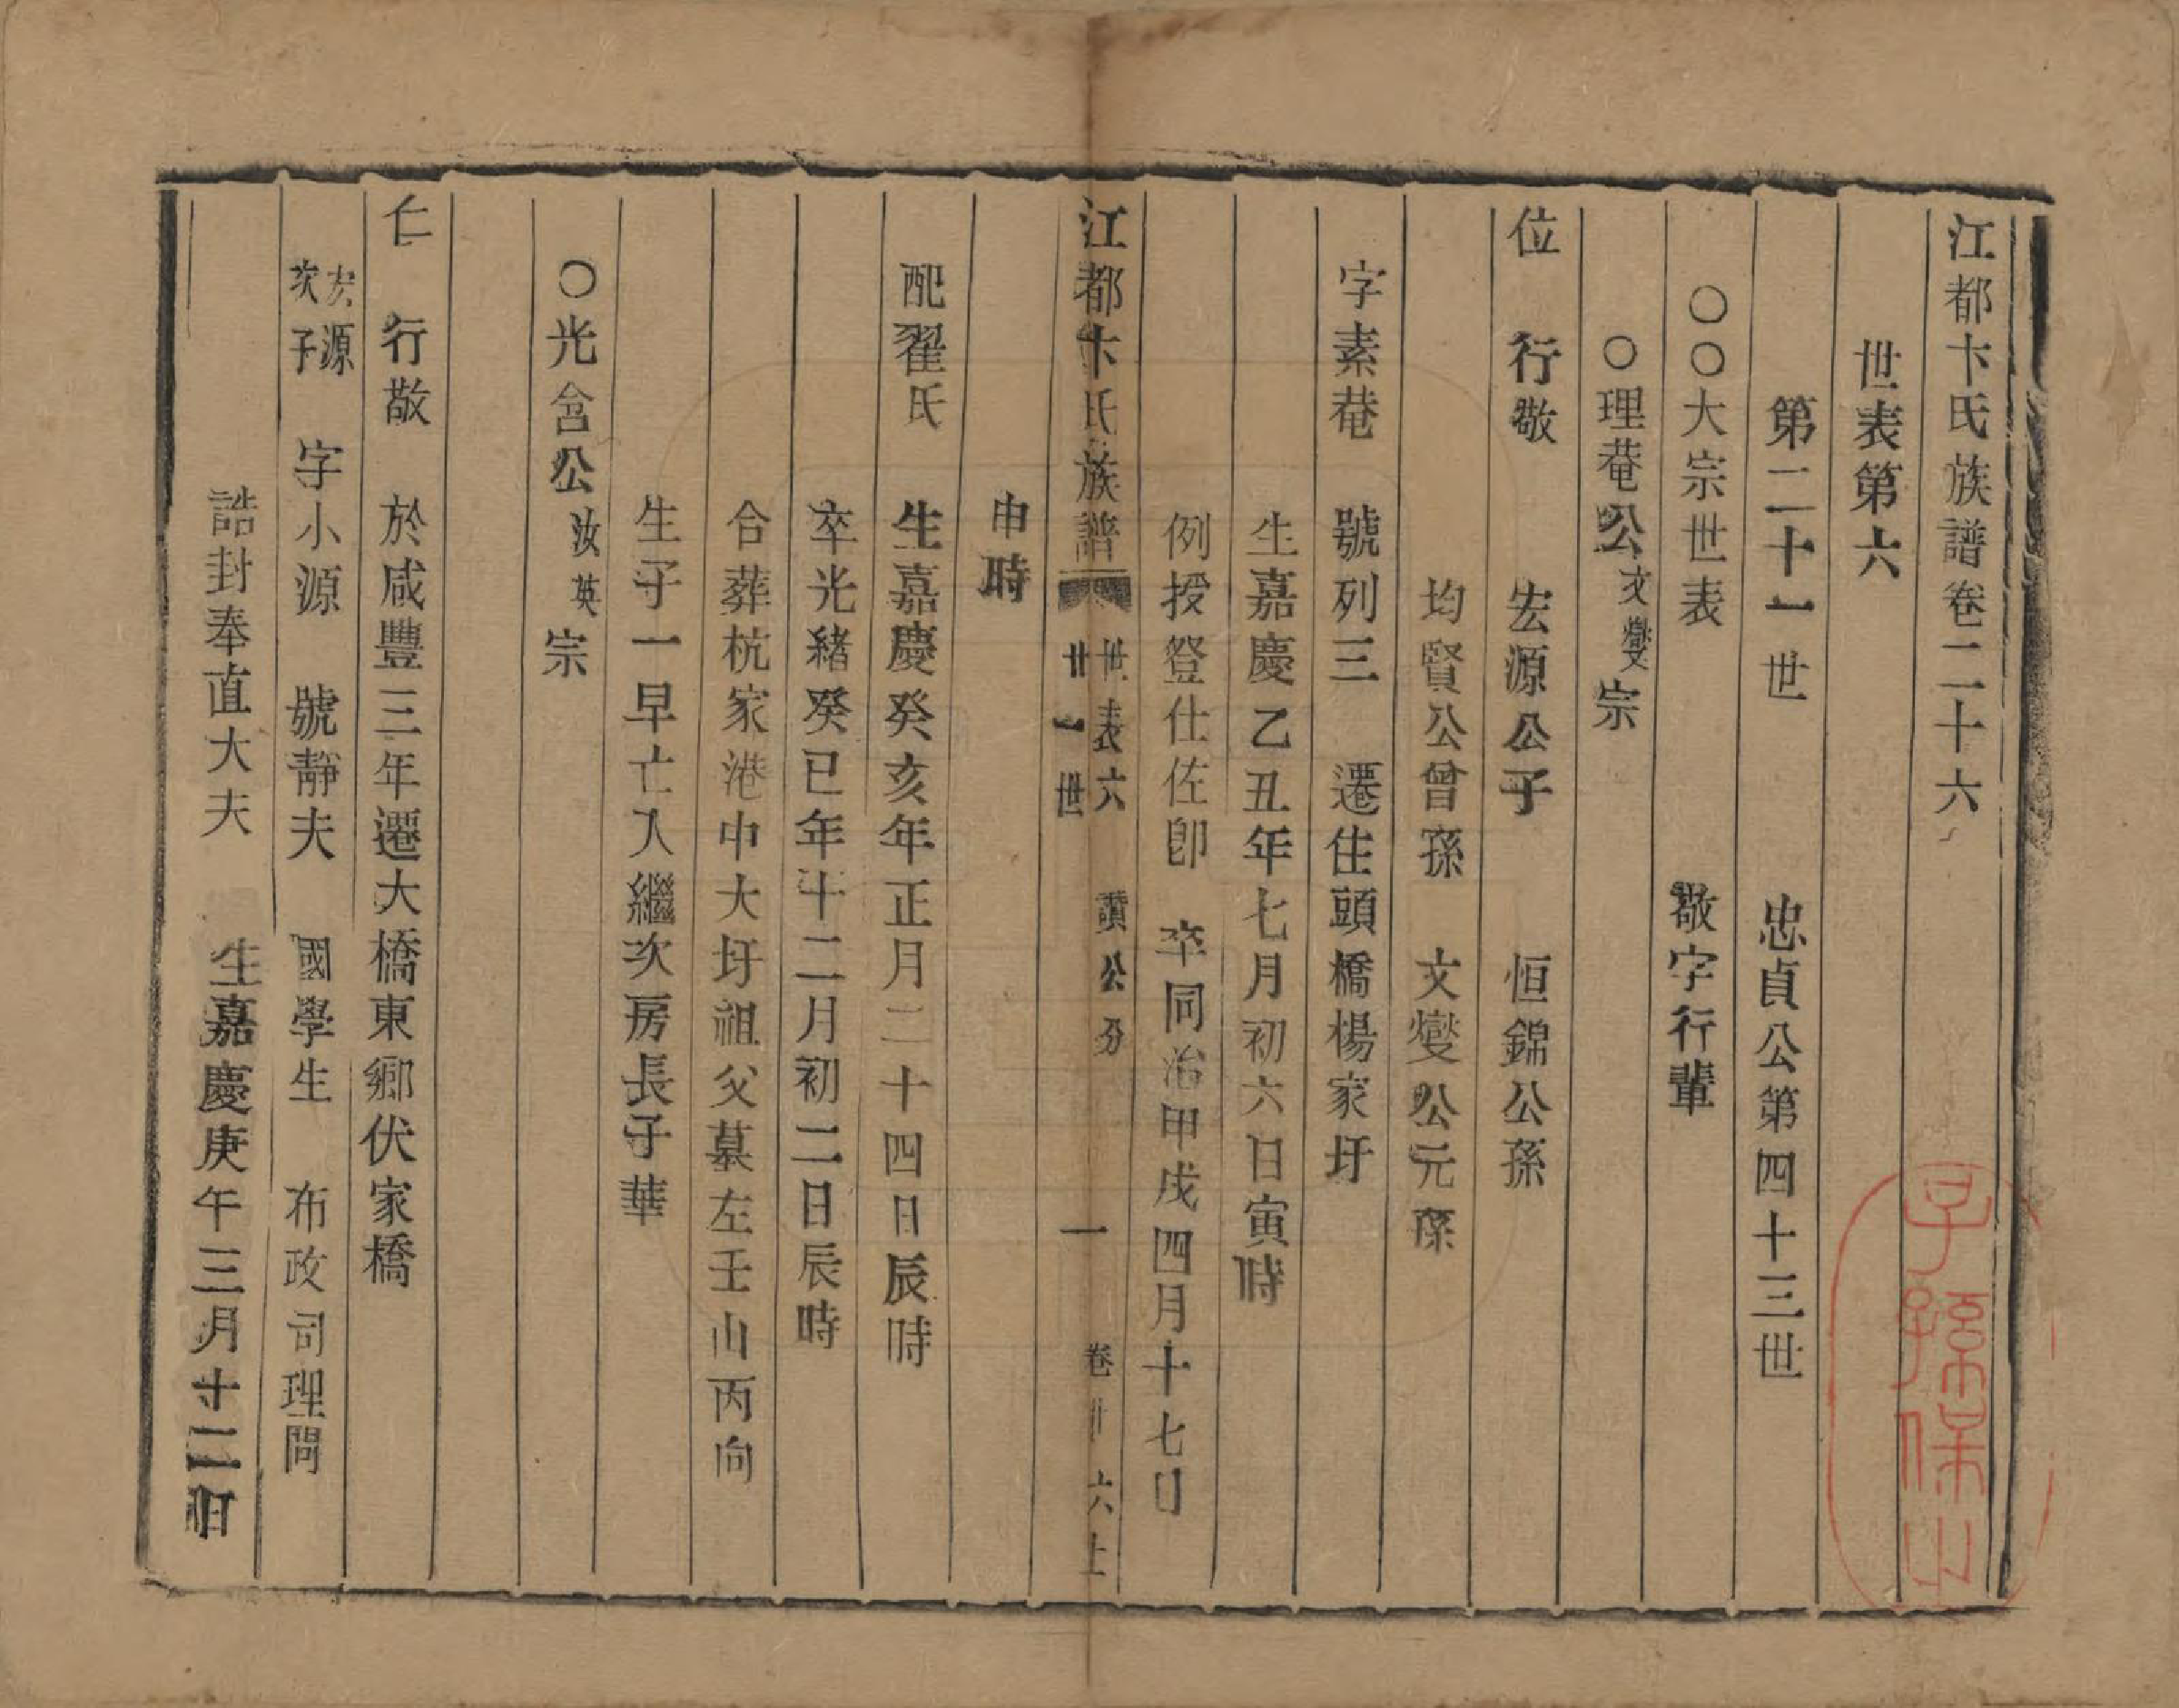 江都卞氏族譜卷二十六
世表第六
第二十一世　忠貞公第四十三世
○○大宗世表　敬字行輩
○理菴公文燮宗
位　行敬　宏源公子　恒錦公孫
均賢公曾孫　文燮公元孫
字素菴　號列三　遷住頭橋楊家圩
生嘉慶乙丑年七月初六日寅時
例授登仕佐郎　卒同治甲戌四月十七日
江都卞氏族譜　世表六　讚公分
廿一世　一　卷廿六上
申時
配翟氏　生嘉慶癸亥年正月二十四日辰時
卒光緒癸巳年十二月初二日辰時
合葬杭家港中大圩祖父墓左壬山丙向
生子一早亡入繼次房長子華
○光含公汝英宗
仁　行敬　於咸豐三年遷大橋東鄉伏家橋
宏源
次子　字小源　號靜夫　國學生　布政司理問
誥封奉直大夫　生嘉慶庚午三月十二日
子孫保之